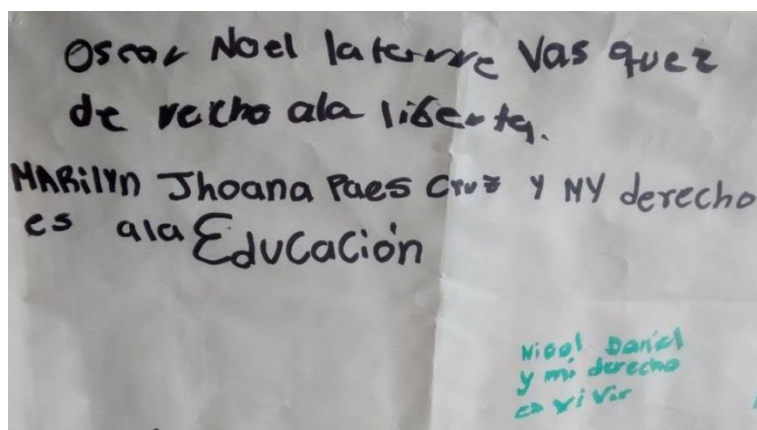 Oscar Noel laterrre Vas quez
de recho ala liberta.
MARilYn Jhoana Paes Cruz Y MY derecho
es ala Educación
Nicol Daniel
y mi derecho
es vi vir